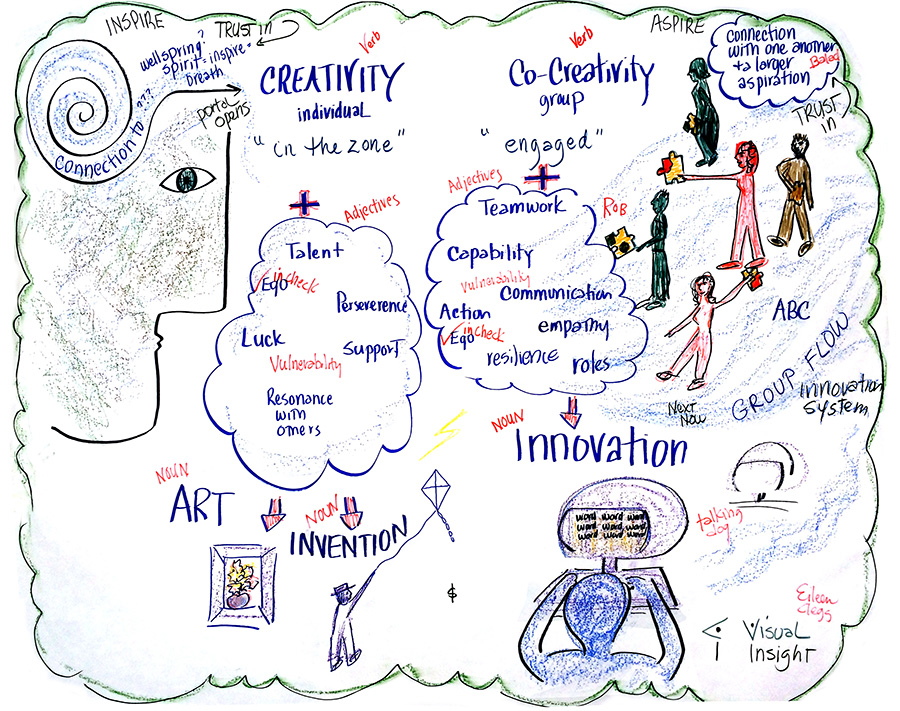 INSPIRE
TRUST in
wellspring?
spirit = inspire =
breath
connection to ???
portal
opens
Verb
CREATIVITY
individual
"in the zone"
Adjectives
Talent
Ego
in check
Perseverence
Luck
Support
Vulnerability
Resonance
with
others
NOUN
ART
NOUN
INVENTION
Verb
Co-Creativity
group
"engaged"
Adjectives
Teamwork
Capability
Vulnerability
Communication
Action
Ego
in check
empathy
resilience
roles
NOUN
Innovation
word word word
word word word
word word word
ASPIRE
connection
with one another
+ a larger
aspiration
TRUST
in
ROB
ABC
GROUP FLOW
innovation
system
Next
Now
talking
Eileen
Clegg
Visual
Insight